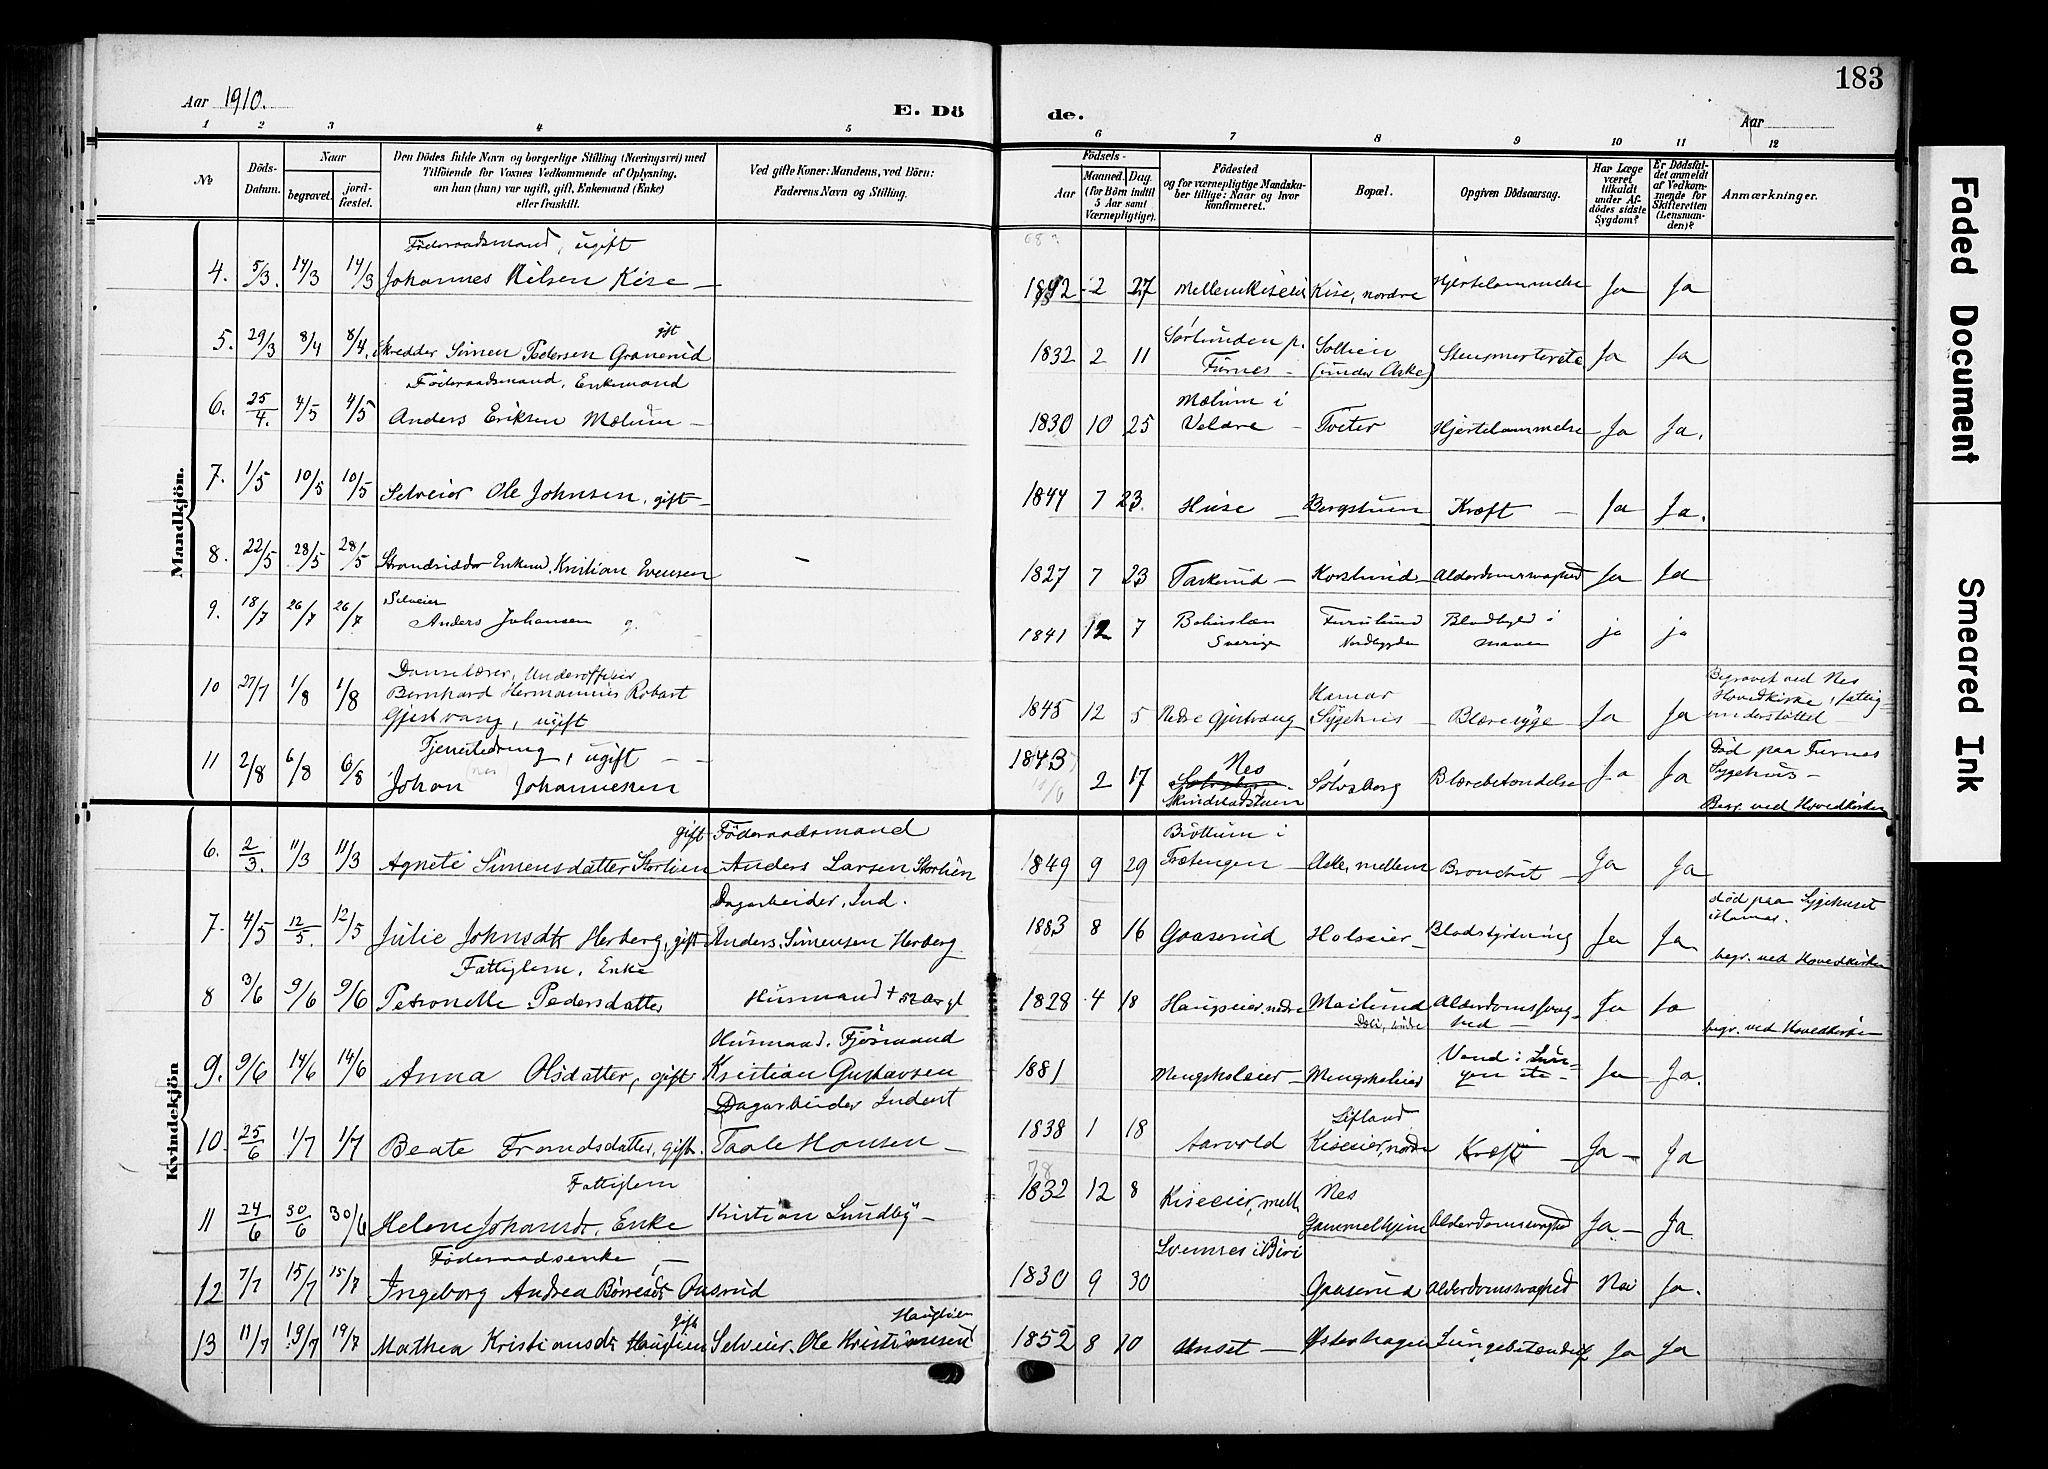 183
Aar 1910.
E. Döde.
Aar
1 2 3 4 5 6 7 8 9 10 11 12
No
Döds-Datum.
Naar
begravet.
jord-fæstet.
Den Dödes fulde Navn og borgerlige Stilling (Næringsvei) med
Tilföiende for Voxnes Vedkommende af Oplysning,
om han (hun) var ugift, gift, Enkemand (Enke)
eller fraskilt.
Ved gifte Koner: Mandens, ved Börn:
Faderens Navn og Stilling.
Födsels-
Aar
Maaned. Dag.
(for Börn indtil
5 Aar samt
Værnepligtige).
Födested
og for værnepligtige Mandska-
ber tillige: Naar og hvor
konfirmeret.
Bopæl.
Opgiven Dödsaarsag.
Har Læge
været
tilkaldt
under Af-
dödes sidste
Sygdom?
Er Dödsfal-
det anmeldt
af Vedkom-
mende for
Skifteretten
(Lensman-
den)?
Anmærkninger.
Mandkjön.
Föderaadsmand, ugift
4. 5/3. 14/3 14/3 Johannes Nilsen Kise — 1842 2 27 Mellem Kiseeie Kise, nordre Hjertelammelse Ja Ja
gift
5. 29/3 8/4 8/4. Skredder Simen Pedersen Granerud 1832 2 11 Sørlunden p. Furnes — Sollien (under Aske) Ja Ja
Föderaadsmand, Enkemand
6. 25/4. 4/5 4/5 Anders Eriksen Mælum — 1830 10 25 Mælum i Veldre — Tveter Hjertelammelse Ja Ja.
7. 1/5 10/5 10/5 Selveier Ole Johnsen, gift — 1844 7 23 Huse — Bergstuen Kræft — Ja Ja.
8. 22/5 28/5 28/5 Strandsidder Enkem. Kristian Evensen — 1827 7 23 Taskerud — Korslund — Alderdomssvaghed Ja Ja
Selveier
9. 18/7 26/7 26/7 Anders Johansen g. 1841 12 7 Bohuslæn Sverige Furulund Nordbygden i maven ja ja
Danselærer, Underofficer
10 27/7 1/8 1/8 Bernhard Hermannus Robart
Gjestvang, ugift 1845 12 5 Nedre Gjestvang Hamar Sygehus — Blæresyge — Ja Ja Begravet ved Nes
Hovedkirke, fattig-
understöttet —
Tjenestedreng, ugift —
11 2/8 6/8 6/8 Johan Johannesen 1843 2 17 Nes Skindstadstuen Sølvsberg Blærebetændelse Ja Ja Död paa Furnes
Sygehus —
Begr. ved Hovedkirken
Kvindekjön
gift Föderaadsmand
6. 2/3. 11/3 11/3 Agnete Simensdatter Storlien Anders Larsen Storlien 1849 9 29 Brøttum i Trætengen — Aske, mellem Bronchit — Ja Ja
Dagarbeider, Ind.
7. 4/5 12/5. 12/5 Julie Johnsdt Herberg, gift Anders Simensen Herberg 1883 8 16 Gaaserud Holseier — Blodstyrtning Ja Ja död paa Sygehuset
i Hamar.
begr. ved Hovedkirken
Fattiglem, Enke
8 3/6 9/6 9/6 Petronelle Pedersdatter Husmand 1828 4 18 Haugseier, nedre Mailund Alderdomssvag-
hed — Ja Ja begr. ved Hovedkirken
Husmand, Fjösmand
9. 9/6 14/6 14/6 Anna Olsdatter, gift Kristian Gustavsen 1881 Mengsholeier — Mengsholeier Vand i Lun-
gen Ja Ja.
Dagarbeider Inderst
10. 25/6 1/7 1/7 Beate Frandsdatter, gift. Taale Hansen — 1838 1 18 Aarvold Lifland Kiseeier, nordre Kræft — Ja — Ja
Fattiglem
11 24/6 30/6 30/6 Helene Johansd., Enke Kristian Lundby — 1832 12 8 Kiseeier, mell. Nes Gammelhjem Alderdomssvaghed Ja — Ja
Föderaadsenke —
12 7/7 15/7 15/7 Ingeborg Andrea Börresdt Aasrud 1830 9 30 Svennes i Biri Gaaserud Alderdomssvaghed Nei Ja.
gift Hauglien
13 11/7 19/7 19/7 Mathea Kristiansdt Hauglien Selveier. Ole Kristiansen 1852 8 10 Unset — Østerhagen Lungebetændelse Ja Ja
Faded Document
Smeared Ink